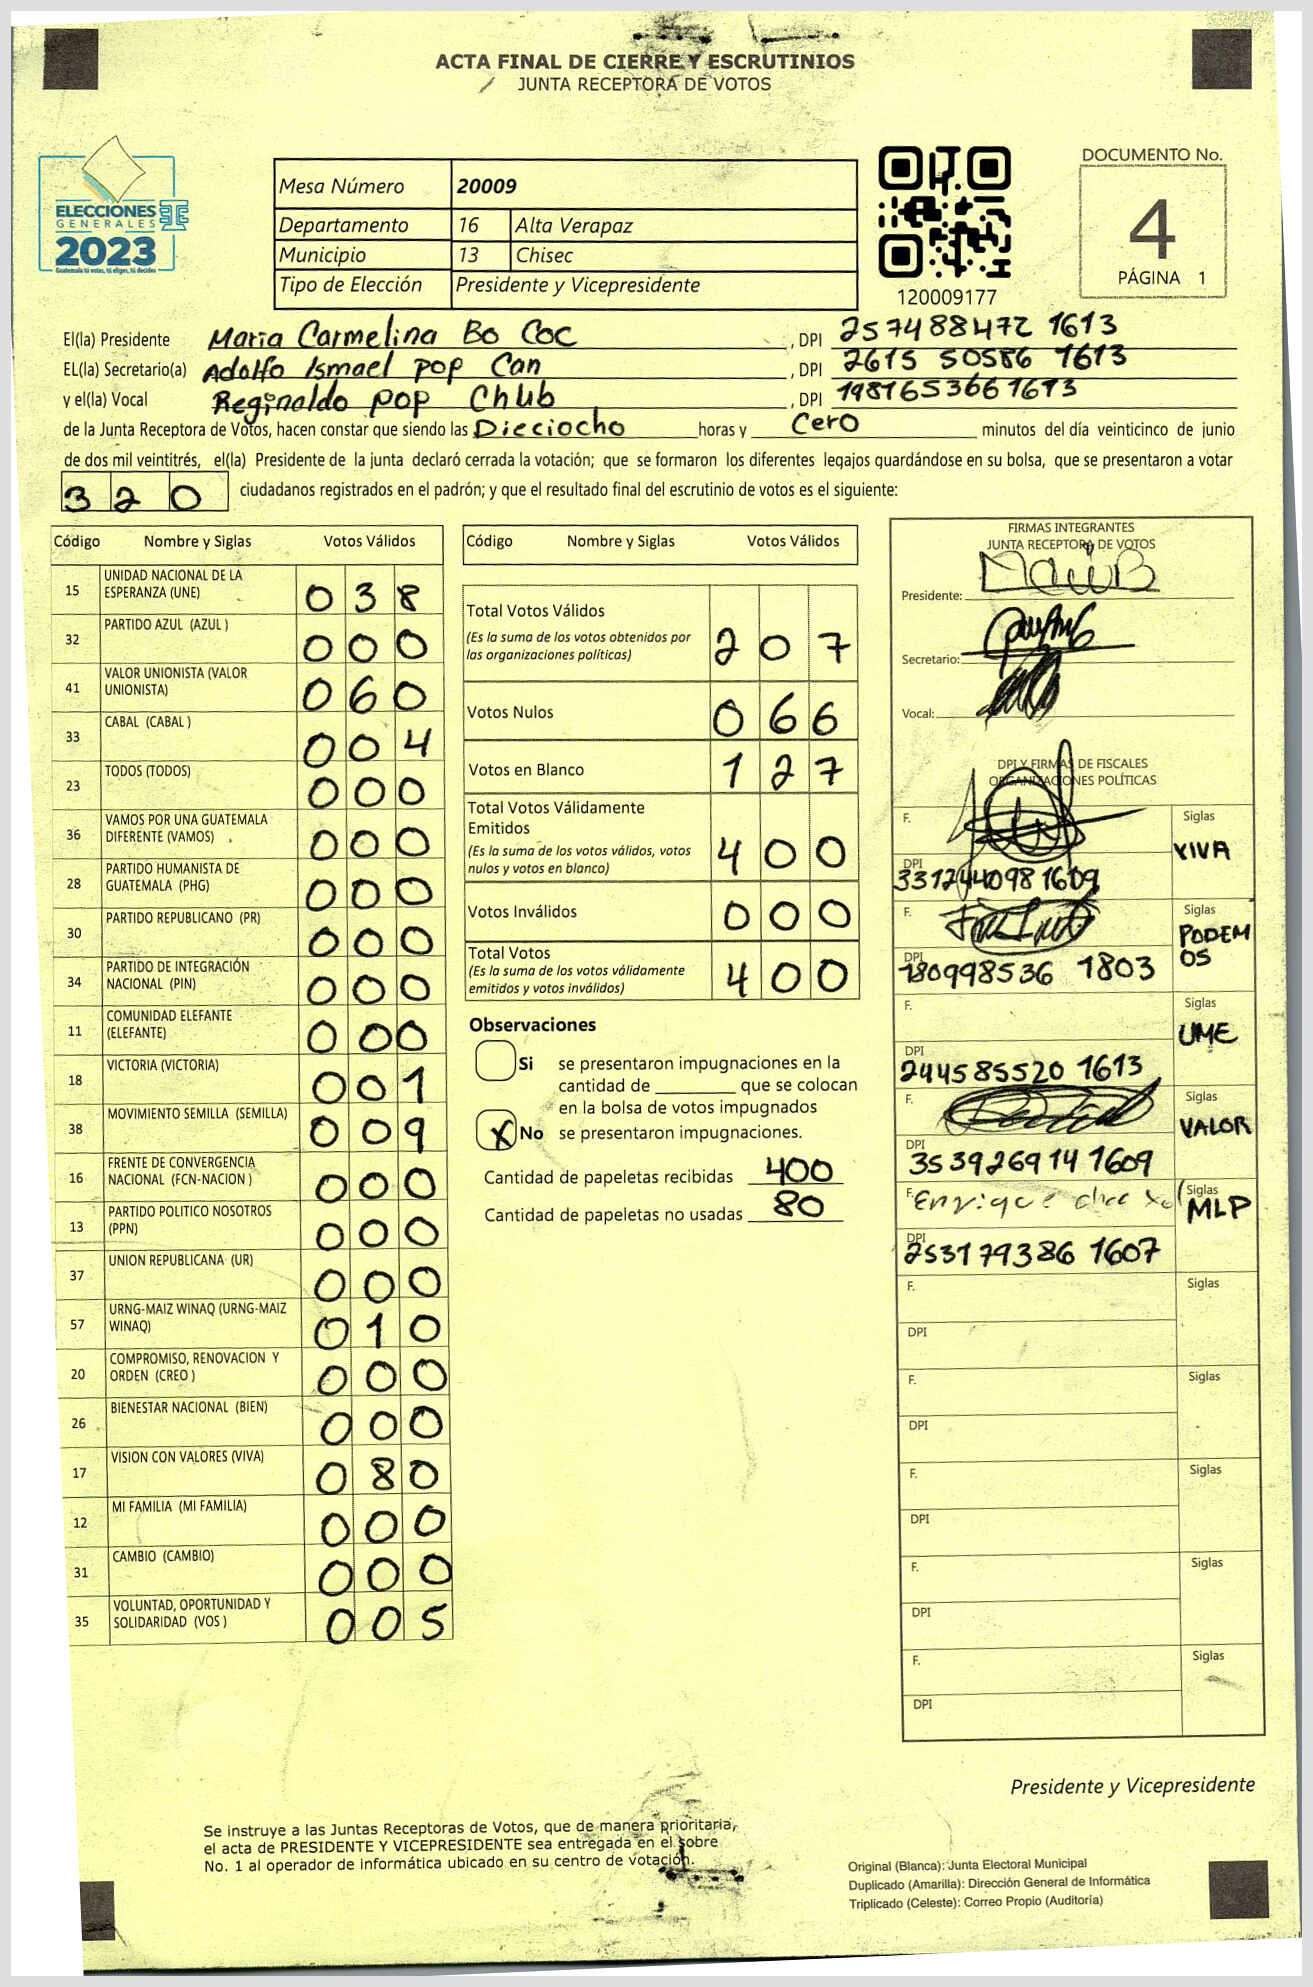 ACTA FINAL DE CIERRE Y ESCRUTINIOS
JUNTA RECEPTORA DE VOTOS
ELECCIONES
GENERALES
2023
Guatemala tú votas, tú eliges, tú decides
Mesa Número 20009
Departamento 16 Alta Verapaz
Municipio 13 Chisec
Tipo de Elección Presidente y Vicepresidente
120009177
DOCUMENTO No.
4
PÁGINA 1
El(la) Presidente Maria Carmelina Bo Coc , DPI 257488472 1613
EL(la) Secretario(a) Adolfo Ismael pop Can , DPI 2615 50586 1613
y el(la) Vocal Reginaldo pop Chub , DPI 1981653661613
de la Junta Receptora de Votos, hacen constar que siendo las Dieciocho horas y Cero minutos del día veinticinco de junio
de dos mil veintitrés, el(la) Presidente de la junta declaró cerrada la votación; que se formaron los diferentes legajos guardándose en su bolsa, que se presentaron a votar
320 ciudadanos registrados en el padrón; y que el resultado final del escrutinio de votos es el siguiente:
Código Nombre y Siglas Votos Válidos
15 UNIDAD NACIONAL DE LA ESPERANZA (UNE) 038
32 PARTIDO AZUL (AZUL ) 000
41 VALOR UNIONISTA (VALOR UNIONISTA) 060
33 CABAL (CABAL ) 004
23 TODOS (TODOS) 000
36 VAMOS POR UNA GUATEMALA DIFERENTE (VAMOS) 000
28 PARTIDO HUMANISTA DE GUATEMALA (PHG) 000
30 PARTIDO REPUBLICANO (PR) 000
34 PARTIDO DE INTEGRACIÓN NACIONAL (PIN) 000
11 COMUNIDAD ELEFANTE (ELEFANTE) 000
18 VICTORIA (VICTORIA) 001
38 MOVIMIENTO SEMILLA (SEMILLA) 009
16 FRENTE DE CONVERGENCIA NACIONAL (FCN-NACION ) 000
13 PARTIDO POLITICO NOSOTROS (PPN) 000
37 UNION REPUBLICANA (UR) 000
57 URNG-MAIZ WINAQ (URNG-MAIZ WINAQ) 010
20 COMPROMISO, RENOVACION Y ORDEN (CREO ) 000
26 BIENESTAR NACIONAL (BIEN) 000
17 VISION CON VALORES (VIVA) 080
12 MI FAMILIA (MI FAMILIA) 000
31 CAMBIO (CAMBIO) 000
35 VOLUNTAD, OPORTUNIDAD Y SOLIDARIDAD (VOS ) 005
Código Nombre y Siglas Votos Válidos
Total Votos Válidos 207
(Es la suma de los votos obtenidos por
las organizaciones políticas)
Votos Nulos 066
Votos en Blanco 127
Total Votos Válidamente
Emitidos 400
(Es la suma de los votos válidos, votos
nulos y votos en blanco)
Votos Inválidos 000
Total Votos 400
(Es la suma de los votos válidamente
emitidos y votos inválidos)
Observaciones
Si se presentaron impugnaciones en la
cantidad de ________ que se colocan
en la bolsa de votos impugnados
X No se presentaron impugnaciones.
Cantidad de papeletas recibidas 400
Cantidad de papeletas no usadas 80
FIRMAS INTEGRANTES
JUNTA RECEPTORA DE VOTOS
Presidente:
Secretario:
Vocal:
DPI Y FIRMAS DE FISCALES
ORGANIZACIONES POLÍTICAS
F. Siglas VIVA
DPI 3312440981609
F. Siglas PODEMOS
DPI 180998536 1803
F. Siglas UME
DPI 244585520 1613
F. Siglas VALOR
DPI 353926914 1609
F. Enrique Siglas MLP
DPI 253179386 1607
F. Siglas
DPI
F. Siglas
DPI
F. Siglas
DPI
F. Siglas
DPI
F. Siglas
DPI
Presidente y Vicepresidente
Se instruye a las Juntas Receptoras de Votos, que de manera prioritaria,
el acta de PRESIDENTE Y VICEPRESIDENTE sea entregada en el sobre
No. 1 al operador de informática ubicado en su centro de votación.
Original (Blanca): Junta Electoral Municipal
Duplicado (Amarilla): Dirección General de Informática
Triplicado (Celeste): Correo Propio (Auditoría)